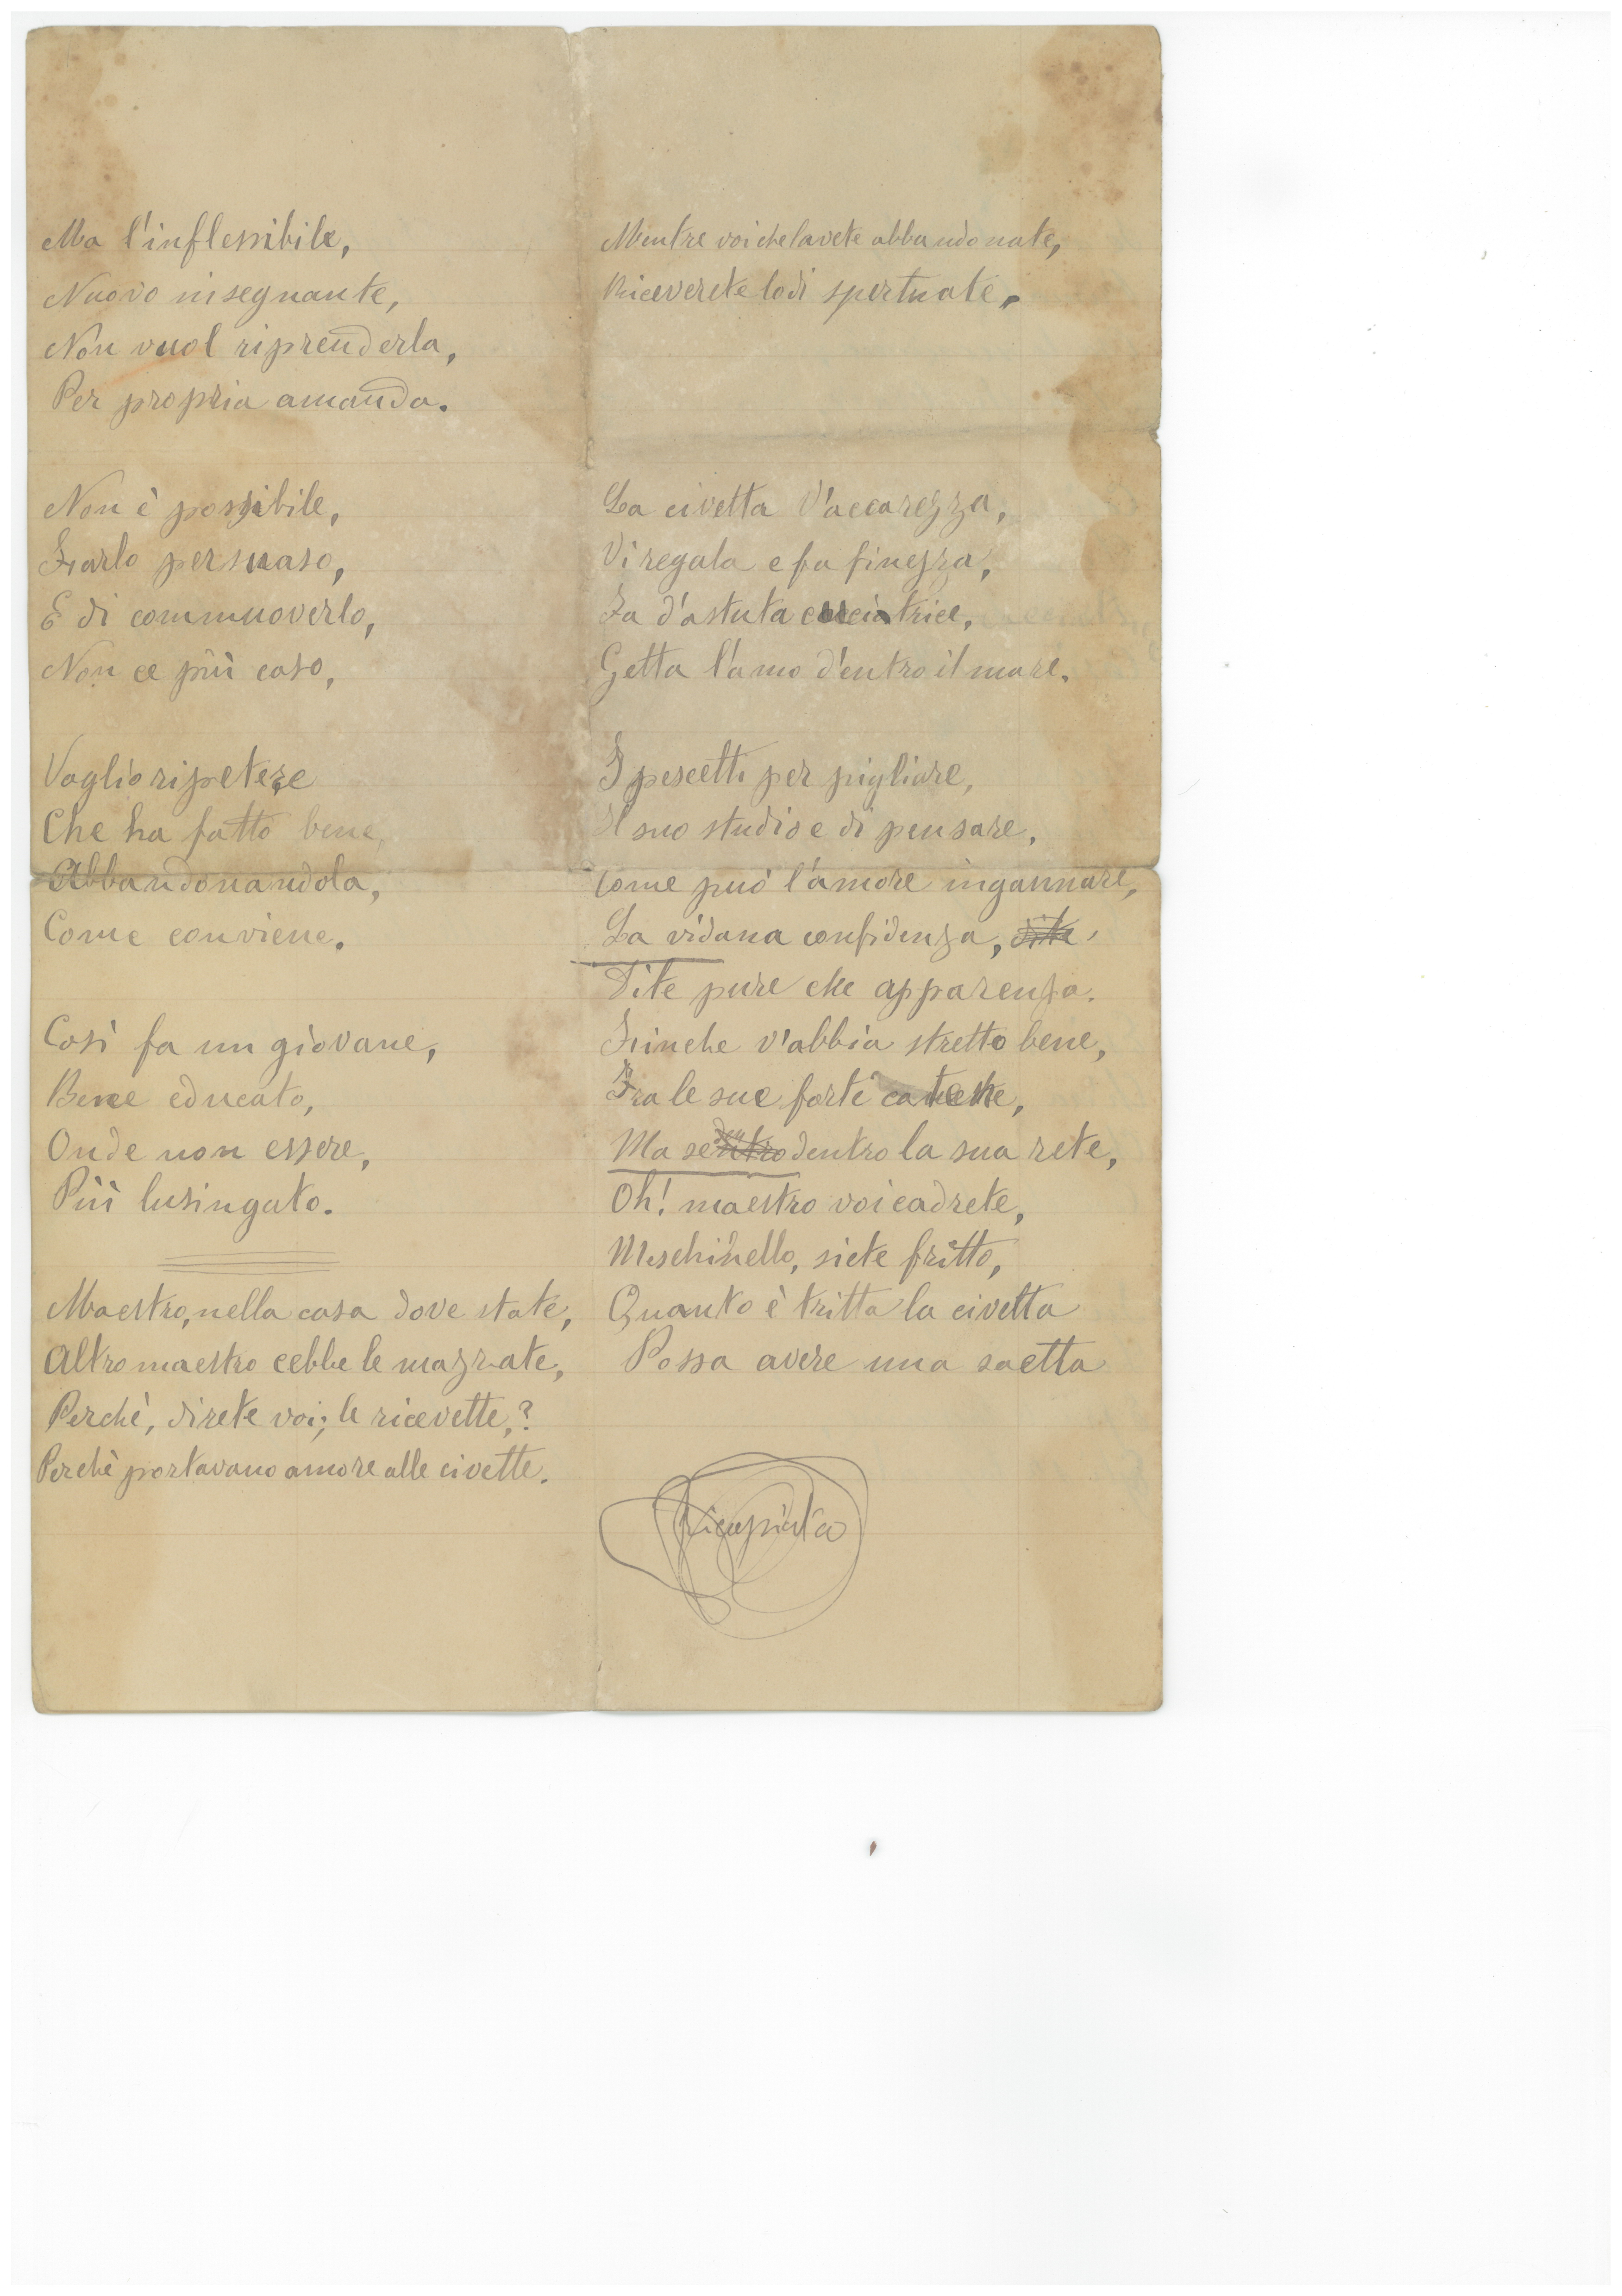 Ma l'inflessibile,
Nuovo insegnante,
Non vuol riprenderla,
Per propria amanda.
Non è possibile,
Farlo persuaso,
E di commuoverlo,
Non ce più caso,
Voglio ripetere
Che ha fatto bene,
Abbandonandola,
Come conviene.
Così fa un giovane,
Bene educato,
Onde non essere,
Più lusingato.
Maestro, nella casa dove state,
Altro maestro cebbe le mazzate,
Perchè, direte voi, le ricevette,?
Perchè portavano amore alle civette.
Mentre voi che lavete abbandonate,
Riceverete lodi spertuate.
La civetta v'accarezza,
Vi regala e fa finezza,
Fa d'astuta cacciatrice,
Getta l'amo d'entro il mare.
I pescetti per pigliare,
Il suo studio e di pensare,
Come può l'amore ingannare,
La vi dana confidenza, dite,
Dite pure che apparenza.
Finche v'abbia stretto bene,
Fra le sue forti catene,
Ma se dentro la sua rete,
Oh! maestro voi cadrete,
Meschinello, siete fritto,
Quanto è tritta la civetta
Possa avere una saetta